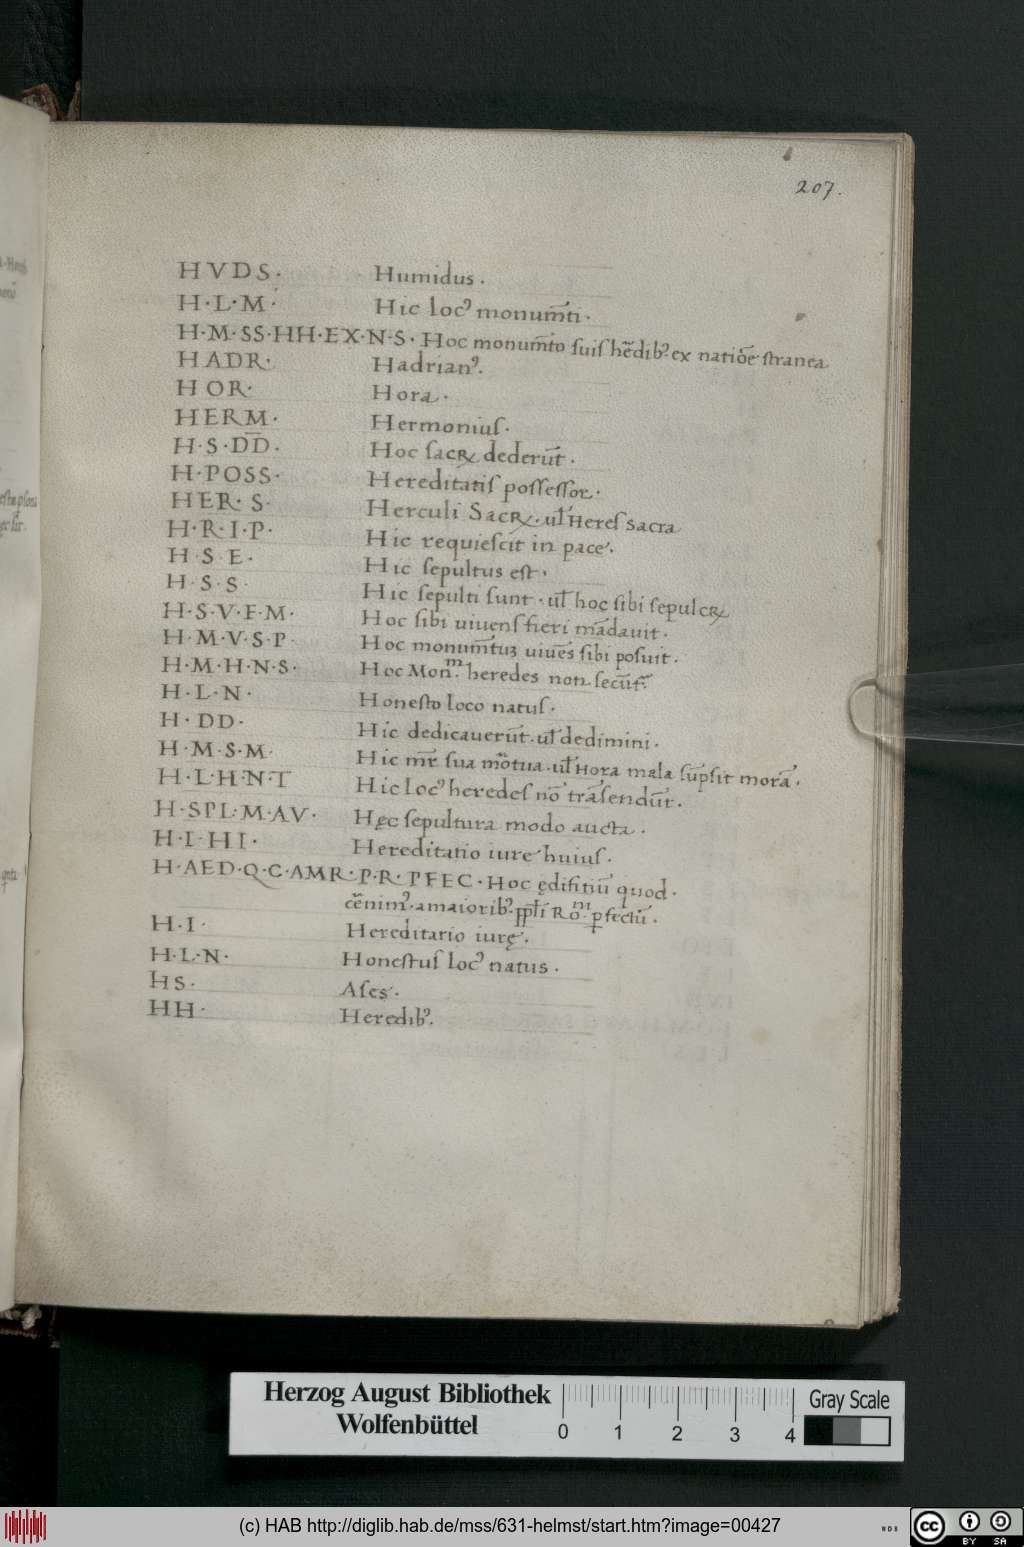 207.
HVDS. Humidus.
H·L·M· Hic loc⁹ monum̅ti·
H·M·SS·HH·EX·N·S· Hoc monum̅to suis he̅dib⁹ ex natio̅e stranea
HADR· Hadrian⁹.
HOR· Hora·
HERM· Hermonius·
H·S·D̅D̅· Hoc sacꝝ dederu̅t·
H·POSS· Hereditatis possessor·
HER·S· Herculi Sacꝝ·ul̅ Heres Sacra
H·R·I·P· Hic requiescit in pace·
H·S·E· Hic sepultus est·
H·S·S· Hic sepulti sunt·ul̅ hoc sibi sepulcꝝ
H·S·V·F·M· Hoc sibi uiuens fieri ma̅dauit·
H·M·V·S·P· Hoc monum̅tuꝫ uiue̅s sibi posuit·
H·M·H·N·S· Hoc Mon.ᵐ heredes non
H·L·N· Honesto loco natus·
H·DD· Hic dedicaueru̅t·ul̅ dedimini·
H·M·S·M· Hic mr̅ sua mo̅tua·ul̅ Hora mala su̅psit mora̅·
H·L·H·N·T Hic loc⁹ heredes no̅ tra̅sendu̅t·
H·SPL·M·AV· Hęc sepultura modo aucta·
H·I·HI· Hereditatio iure huius·
H·AED·Q·C·AMR·P·R·PFEC· Hoc ędifitiu̅ quod·
ce̅nim⁹·a maiorib⁹ Ro.ᵐ ꝑfectu̅·
H·I· Hereditario iurę·
H·L·N· Honestus loc⁹ natus·
HS· Ases·
HH· Heredib⁹.
Herzog August Bibliothek
Wolfenbüttel
0 1 2 3 4
Gray Scale
(c) HAB http://diglib.hab.de/mss/631-helmst/start.htm?image=00427
WDB
cc BY SA